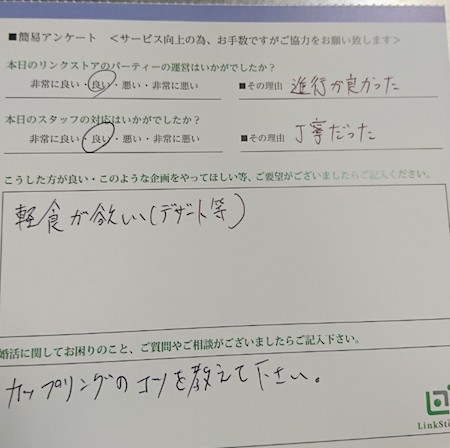 ■簡易アンケート ＜サービス向上の為、お手数ですがご協力をお願い致します＞
本日のリンクストアのパーティーの運営はいかがでしたか？
非常に良い・良い・悪い・非常に悪い ■その理由 進行が良かった
本日のスタッフの対応はいかがでしたか？
非常に良い・良い・悪い・非常に悪い ■その理由 丁寧だった
こうした方が良い・このような企画をやってほしい等、ご要望がございましたらご記入ください。
軽食が欲しい(デザート等)
婚活に関してお困りのこと、ご質問やご相談がございましたらご記入下さい。
カップリングのコツを教えて下さい。